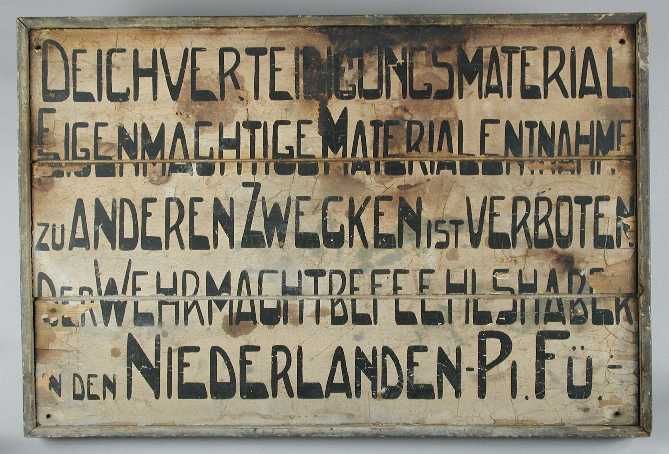 DEICHVERTEIDIGUNGSMATERIAL
EIGENMACHTIGE MATERIALENTNAHME
ZU ANDEREN ZWECKEN IST VERBOTEN
DER WEHRMACHTBEFEEHLSHABER
IN DEN NIEDERLANDEN-PI.FÜ.-